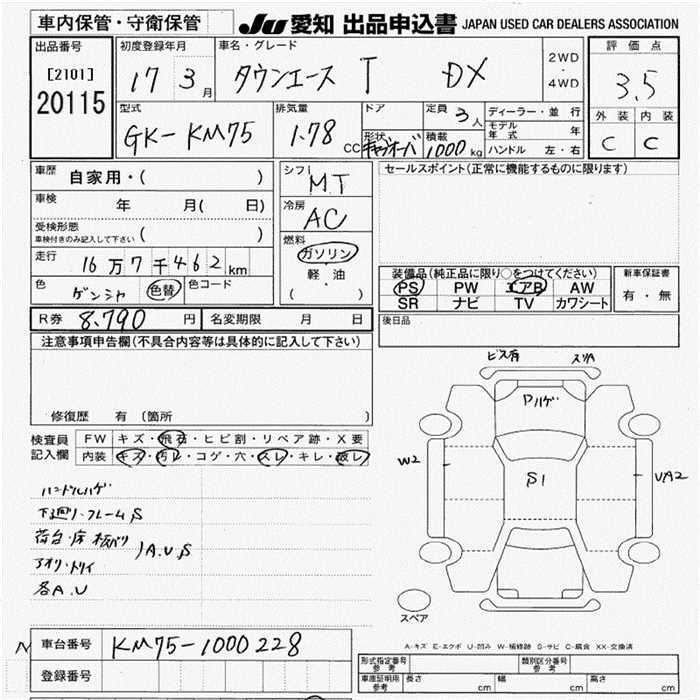 車内保管・守衛保管
JU 愛知 出品申込書 JAPAN USED CAR DEALERS ASSOCIATION
出品番号 初度登録年月 車名・グレード 評価点
[2101] 17 3月 タウンエース T DX 2WD・4WD 3.5
20115
型式 排気量 ドア 定員 3人 ディーラー・並行 外装 内装
GK-KM75 1.78 CC 形状 積載 1000kg モデル年式 年 C C
ハンドル 左・右
車歴 自家用・( ) シフト MT セールスポイント(正常に機能するものに限ります)
車検 年 月( 日) 冷房 AC
受検形態 車検付きのみ記入して下さい ( ) 燃料 ガソリン
走行 16万7千462km 軽油 ( ) 装備品(純正品に限り○をつけてください) 新車保証書
色 ゲンシャ 色替 色コード PS PW エアB AW 有・無
SR ナビ TV カワシート
R券 8.790円 名変期限 月 日 後日品
注意事項申告欄(不具合内容等は具体的に記入して下さい)
ビス有 スリA
Pハゲ
修復歴 有 (箇所
検査員 FW キズ・飛石・ヒビ割・リペア跡・X要
記入欄 内装 キズ・汚レ・コゲ・穴・スレ・キレ・破レ
W2 S1 UA2
ハンドルハゲ
下廻り・フレームS
荷台・床板バリ
アオリ・トリイ )A.U.S
各A.U
スペア
A-キズ E-エクボ U-凹み W-補修跡 S-サビ C-腐食 XX-交換済
車台番号 KM75-1000228
登録番号
形式指定番号 参考 類別区分番号 参考
車庫証明用 参考 長さ cm 幅 cm 高さ cm